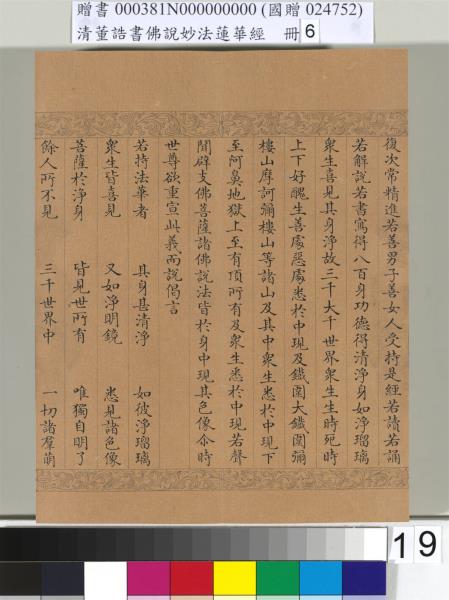 贈書 000381N000000000 (國贈 024752)
清董誥書佛說妙法蓮華經 冊 6
復次常精進若善男子善女人受持是經若讀若誦
若解說若書寫得八百身功德得清淨身如淨瑠璃
眾生喜見其身淨故三千大千世界眾生生時死時
上下好醜生善處惡處悉於中現及鐵圍大鐵圍彌
樓山摩訶彌樓山等諸山及其中眾生悉於中現下
至阿鼻地獄上至有頂所有及眾生悉於中現若聲
聞辟支佛菩薩諸佛說法皆於身中現其色像尒時
世尊欲重宣此義而說偈言
若持法華者 其身甚清淨 如彼淨瑠璃
眾生皆喜見 又如淨明鏡 悉見諸色像
菩薩於淨身 皆見世所有 唯獨自明了
餘人所不見 三千世界中 一切諸羣萌
19